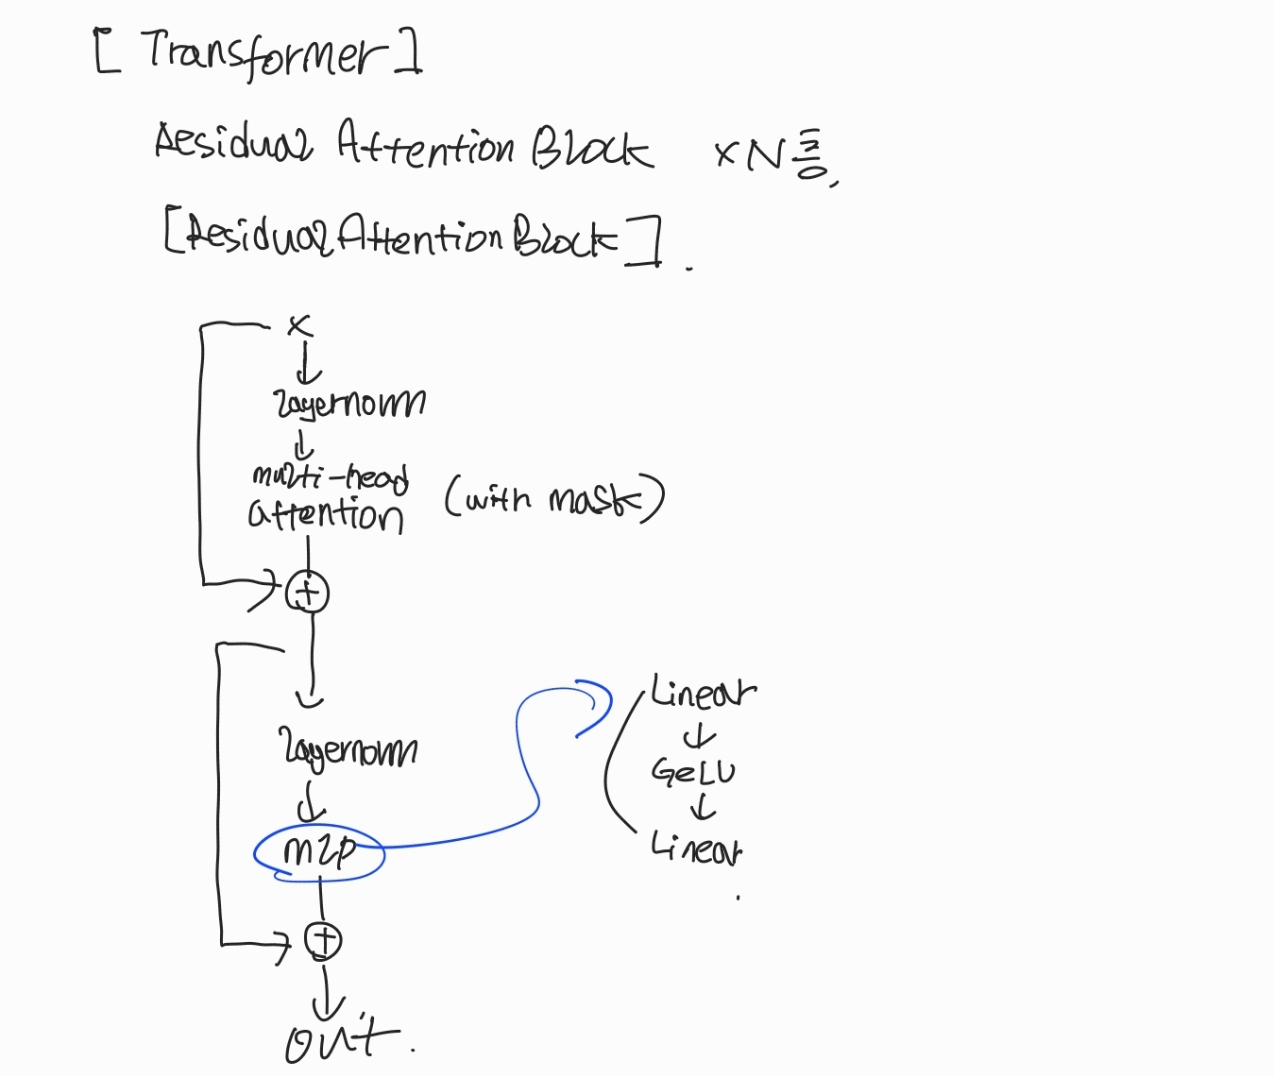 [ Transformer ]
Residual Attention Block × N층,
[Residual Attention Block].
x
layernorm
multi-head
attention (with mask)
+
layernorm
mlp
+
out.
Linear
GeLU
Linear